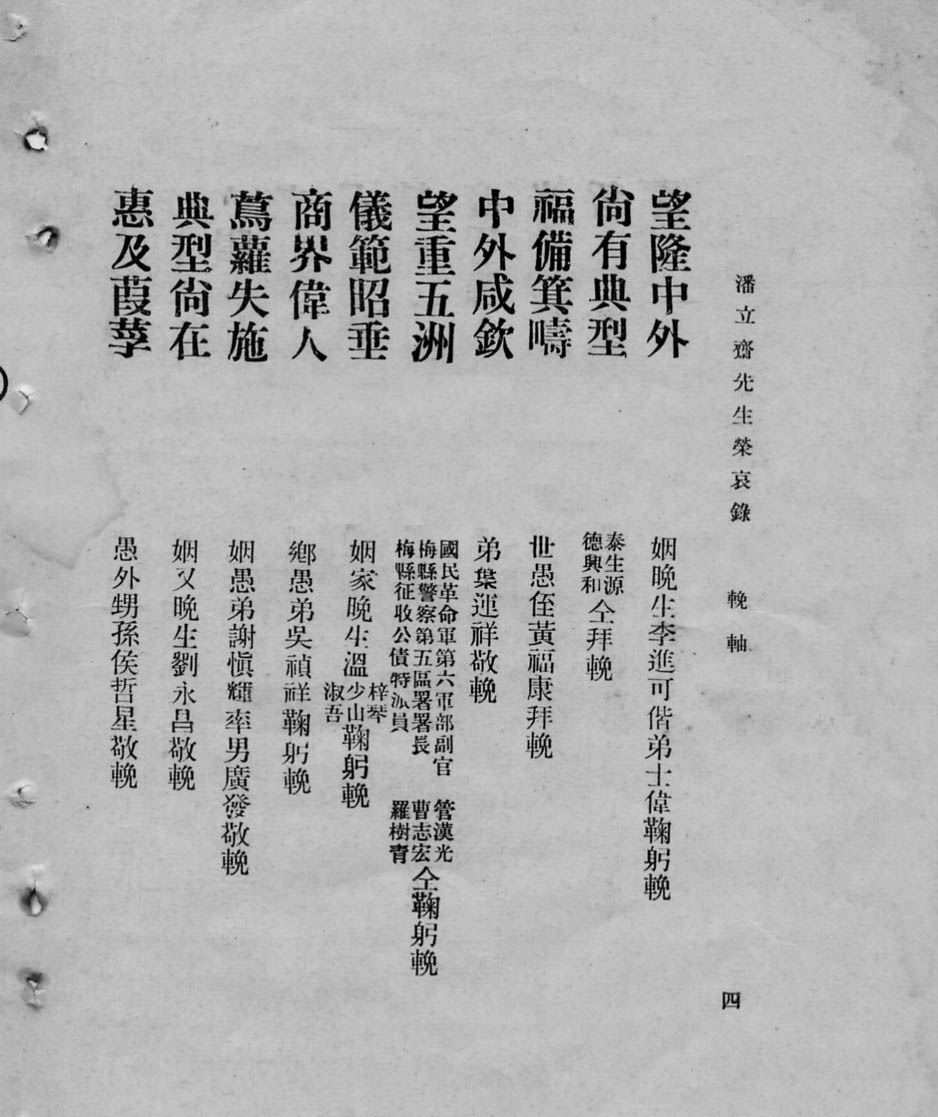 潘立齋先生榮哀錄 輓軸 四
望隆中外 姻晚生李進可偕弟士偉鞠躬輓
尙有典型 泰生源 德興和 仝拜輓
福備箕疇 世愚侄黃福康拜輓
中外咸欽 弟葉運祥敬輓
望重五洲 國民革命軍第六軍部副官 管漢光 梅縣警察第五區署署長 曹志宏 梅縣征收公債特派員 羅樹青 仝鞠躬輓
儀範昭垂 姻家晚生溫 梓琴 少山 淑吾 鞠躬輓
商界偉人 鄕愚弟吳禎祥鞠躬輓
蔦蘿失施 姻愚弟謝愼輝率男廣發敬輓
典型尙在 姻又晚生劉永昌敬輓
惠及葭莩 愚外甥孫侯哲星敬輓